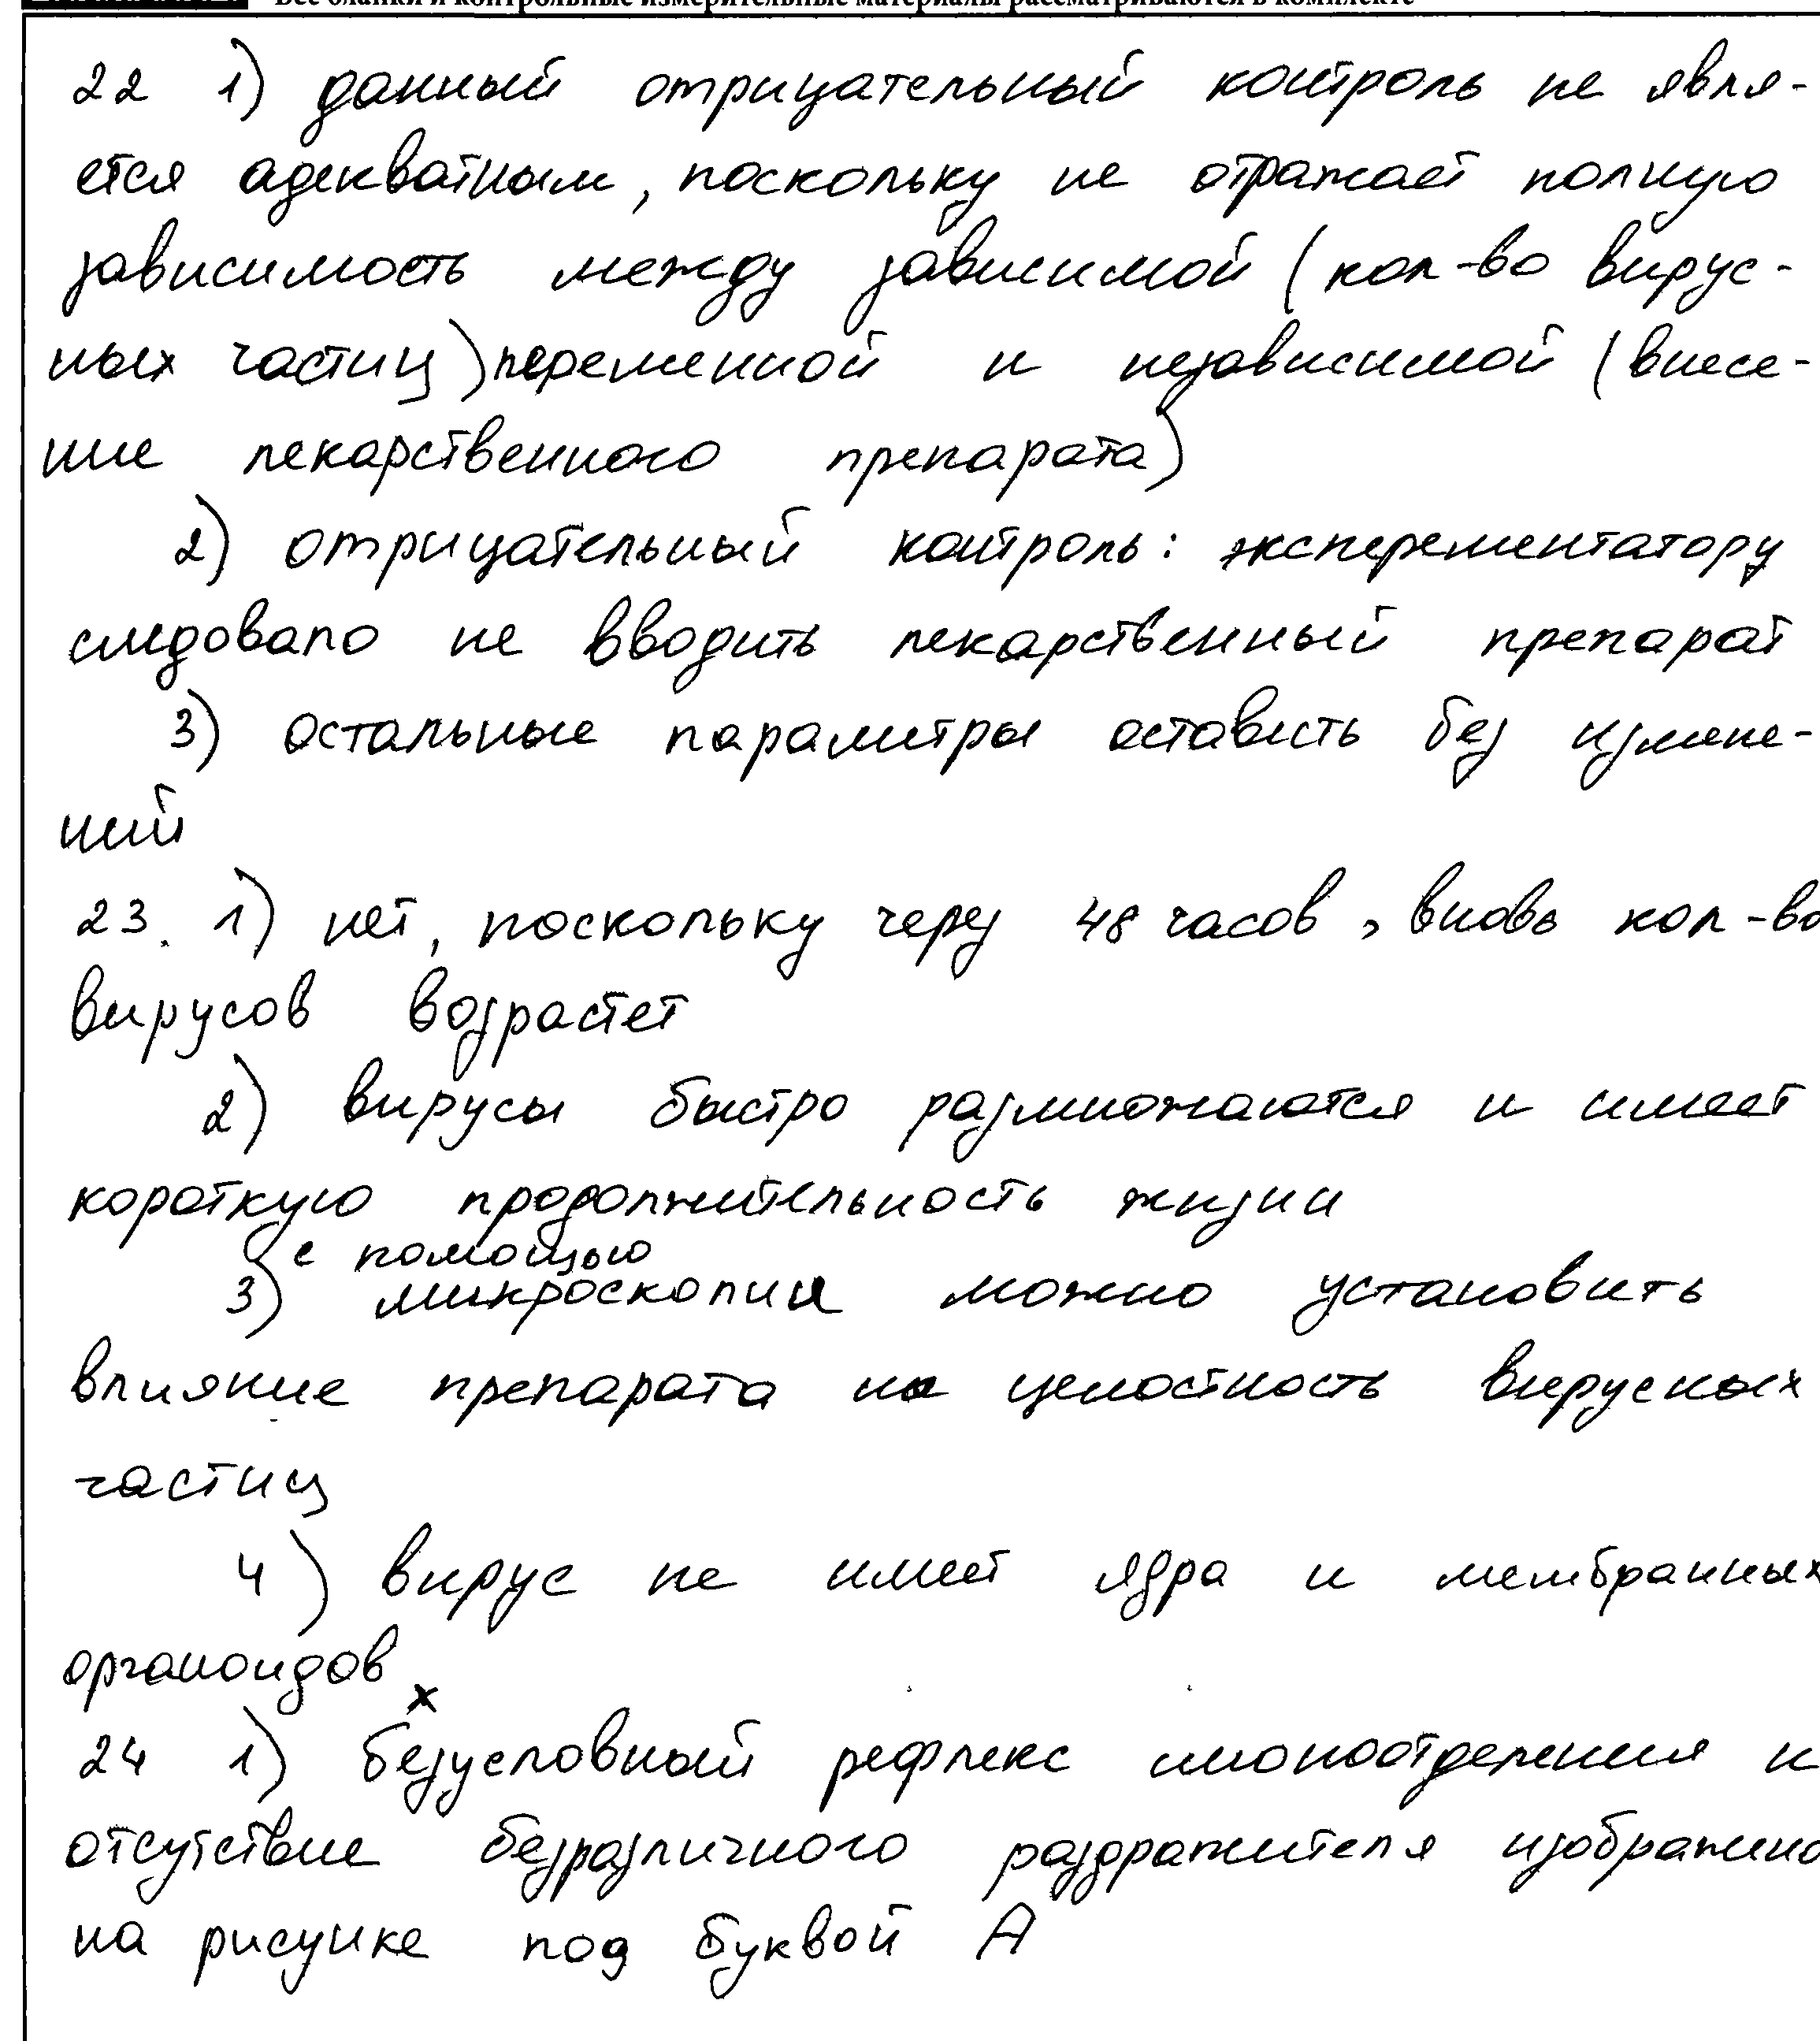 Все бланки и контрольные измерительные материалы рассматриваются в комплекте
22 1) данный отрицательный контроль не явля-
ется адекватным, поскольку не отражает полную
зависимость между зависимой (кол-во вирус-
ных частиц) переменной и независимой (внесе-
ние лекарственного препарата)
2) отрицательный контроль: эксперементатору
следовало не вводить лекарственный препарат
3) остальные параметры оставить без измене-
ний
23. 1) нет, поскольку через 48 часов, вновь кол-во
вирусов возрастет
2) вирусы быстро размножаются и имеет
короткую продолжительность жизни
с помощью
3) микроскопии можно установить
влияние препарата на целостность вирусных
частиц
4) вирус не имеет ядра и мембранных
органоидов
х
24 1) безусловный рефлекс слюноотделения и
отсутствие безразличного раздражителя изображено
на рисунке под буквой А